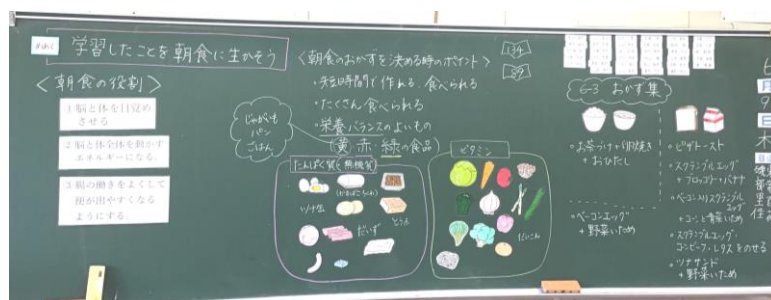 めあて
学習したことを朝食に生かそう
<朝食の役割>
①脳と体を目覚め
させる
②脳と体全体を動かす
エネルギーになる。
③腸の働きをよくして
便が出やすくなる
ようにする。
<朝食のおかずを決める時のポイント>
・短時間で作れる、食べられる
・たくさん食べられる
・栄養バランスのよいもの
(黄・赤・緑の食品)
じゃがいも
パン
ごはん
たんぱく質と無機質
ツナ缶
とうふ
だいず
ビタミン
だいこん
134
89
6-3 おかず集
・お茶づけ+卵焼き
+おひたし
・ベーコンエッグ
+野菜いため
・ピザトースト
・スクランブルエッグ
+ブロッコリー+バナナ
・ベーコン入りスクランブル
エッグ
+コーンと青菜いため
・スクランブルエッグ・
コンビーフ・レタスをのせる
・ツナサンド
+野菜いため
6
月
9
日
木